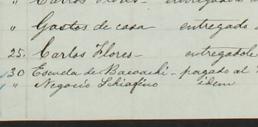 " Carlos Flores - entregado
" Gastos de casa entregado
25. Carlos Flores - entregadole
30 Escuela de Bacoachi - pagado al
" Negocio Schiafino idem